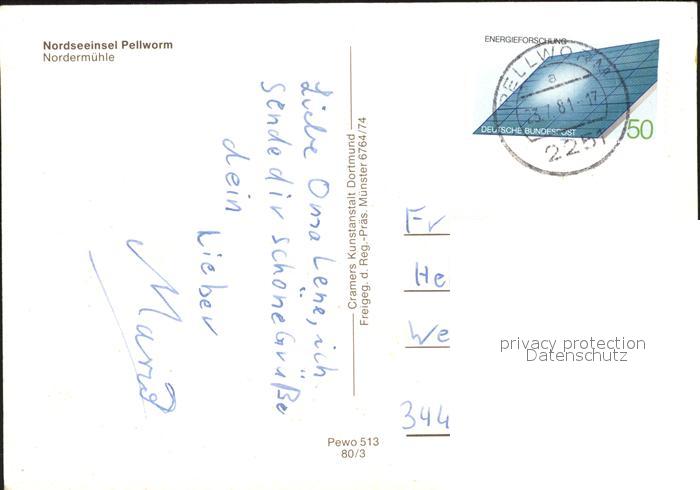 Nordseeinsel Pellworm
Nordermühle
ENERGIEFORSCHUNG
DEUTSCHE BUNDESPOST
50
PELLWORM
a
23.7.81-17
2251
Liebe Oma Lene, ich
sende dir schöne Grüße
dein
Lieber
Cramers Kunstanstalt Dortmund
Freigeg. d. Reg.-Präs. Münster 6764/74
Fr
He
We
344
privacy protection
Datenschutz
Pewo 513
80/3